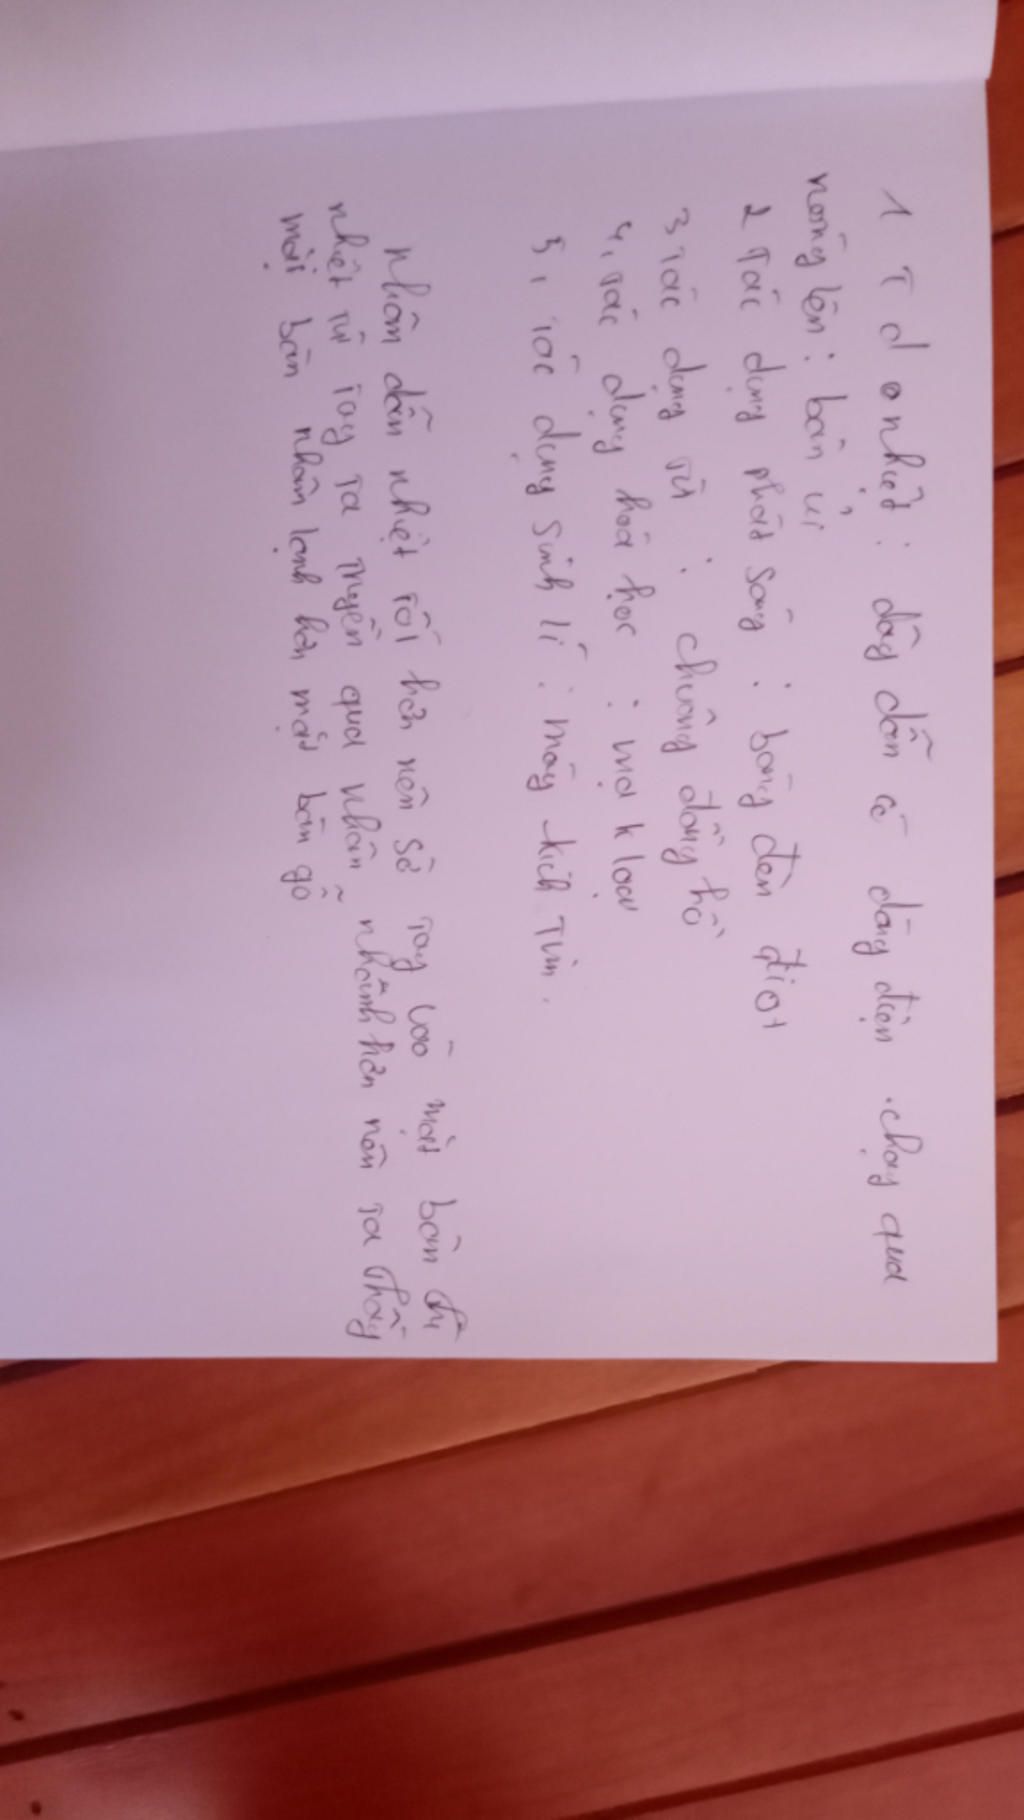 1 T d nhiệt : dây dẫn có dòng điện chạy qua
nóng lên : bàn ủi
2 Tác dụng phát sáng : bóng đèn điot
3 Tác dụng từ : chuông đồng hồ
4, Tác dụng hoá học : mạ k loại
5, Tác dụng sinh lí : máy kích tim.
Nhôm dẫn nhiệt tốt hơn nên sờ tay vào mặt bàn thì
nhiệt từ tay ta truyền qua nhôm nhanh hơn nên ta thấy
mặt bàn nhôm lạnh hơn mặt bàn gỗ